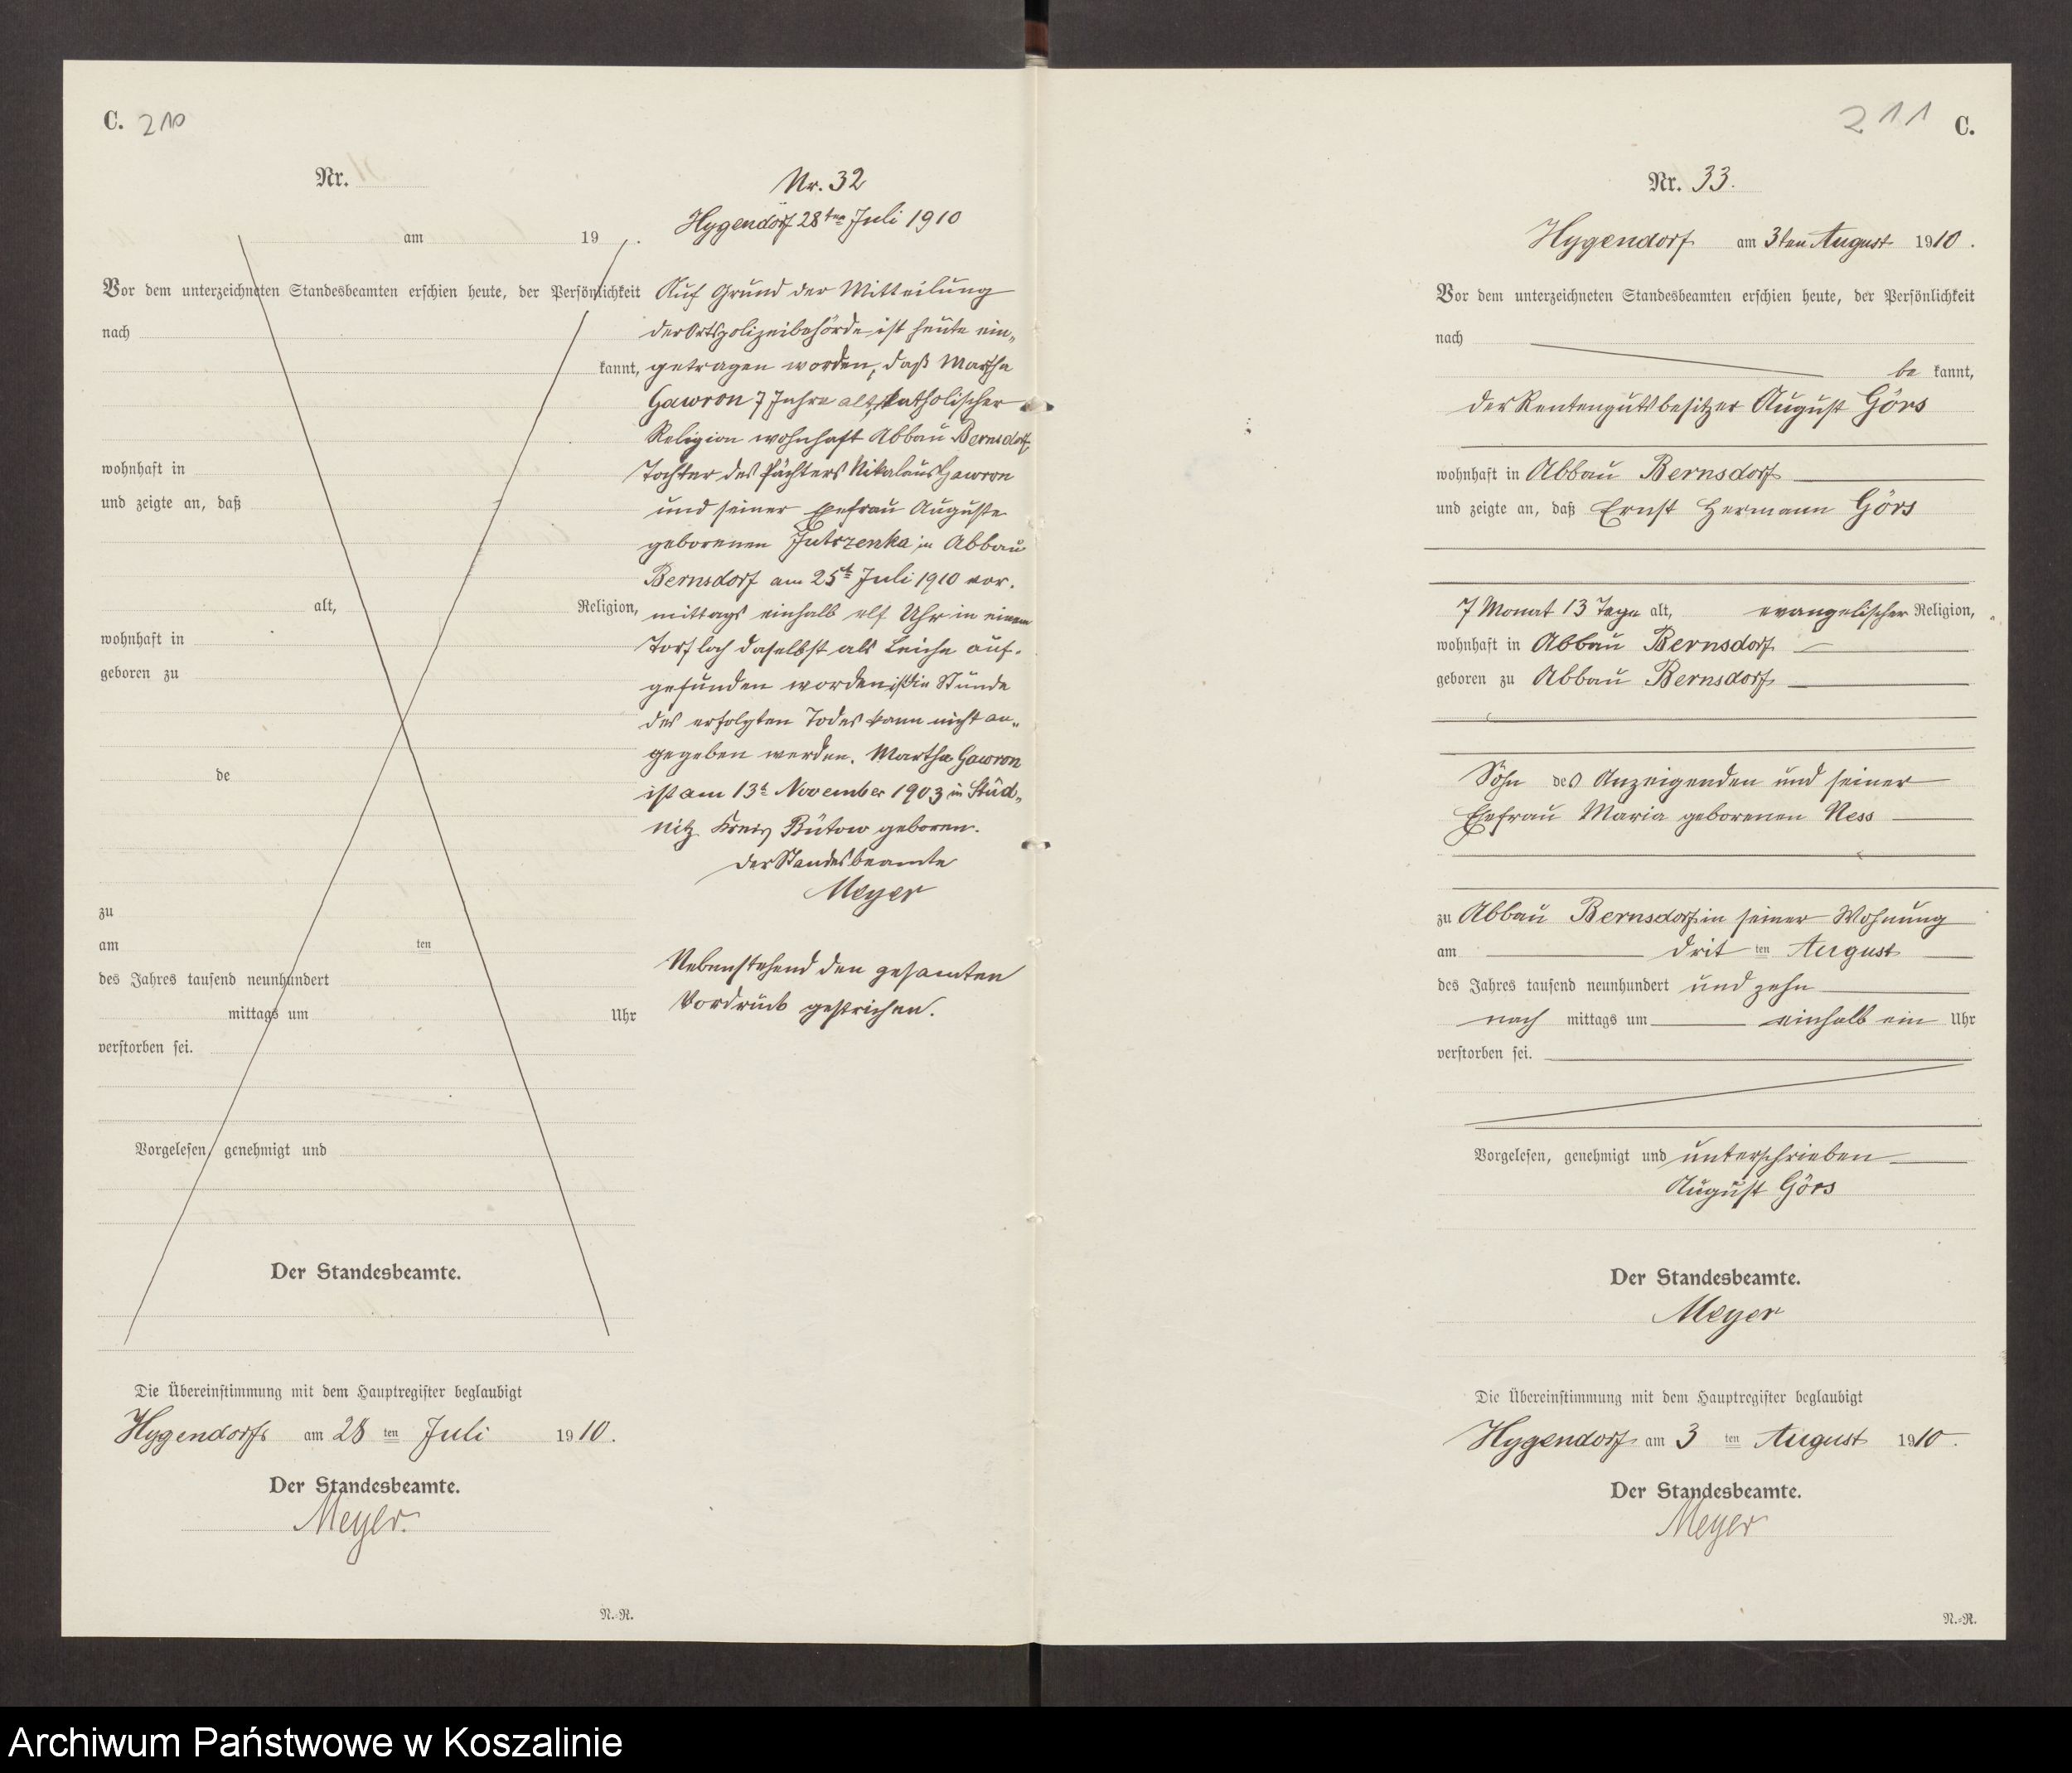 C. 210
Nr.
am 19 .
Vor dem unterzeichneten Standesbeamten erschien heute, der Persönlichkeit
nach
kannt,
wohnhaft in
und zeigte an, daß
alt, Religion,
wohnhaft in
geboren zu
de
zu
am ten
des Jahres tausend neunhundert
mittags um Uhr
verstorben sei.
Vorgelesen, genehmigt und
Der Standesbeamte.
Die Übereinstimmung mit dem Hauptregister beglaubigt
Hygendorf am 28 ten Juli 1910.
Der Standesbeamte.
Meyer.
N.-R.
Nr. 32
Hygendorf 28ten Juli 1910
Auf Grund der Mitteilung
der Ortspolizeibehörde ist heute ein„
getragen worden, daß Martha
Gawron 7 Jahre alt, katholischer
Religion wohnhaft Abbau Bernsdorf,
Tochter des Pächters Nikolaus Gawron
und seiner Ehefrau Auguste
geborenen Jutrzenka in Abbau
Bernsdorf am 25t Juli 1910 vor.
mittags einhalb elf Uhr in einem
Torfloch daselbst als Leiche auf.
gefunden worden ist die Stunde
des erfolgten Todes kann nicht an„
gegeben werden. Martha Gawron
ist am 13t November 1903 in Stüd„
nitz Kreis Bütow geboren.
Der Standesbeamte
Meyer
Nebenstehend den gesamten
Vordruck gestrichen.
211 C.
Nr. 33.
Hygendorf am 3ten August 1910.
Vor dem unterzeichneten Standesbeamten erschien heute, der Persönlichkeit
nach
be kannt,
der Rentengutsbesitzer August Görs
wohnhaft in Abbau Bernsdorf
und zeigte an, daß Ernst Hermann Görs
7 Monat 13 Tage alt, evangelischer Religion,
wohnhaft in Abbau Bernsdorf
geboren zu Abbau Bernsdorf
Sohn des Anzeigenden und seiner
Ehefrau Maria geborenen Ness
zu Abbau Bernsdorf in seiner Wohnung
am drit ten August
des Jahres tausend neunhundert und zehn
nach mittags um einhalb ein Uhr
verstorben sei.
Vorgelesen, genehmigt und unterschrieben
August Görs
Der Standesbeamte.
Meyer
Die Übereinstimmung mit dem Hauptregister beglaubigt
Hygendorf am 3 ten August 1910.
Der Standesbeamte.
Meyer
N.-R.
Archiwum Państwowe w Koszalinie